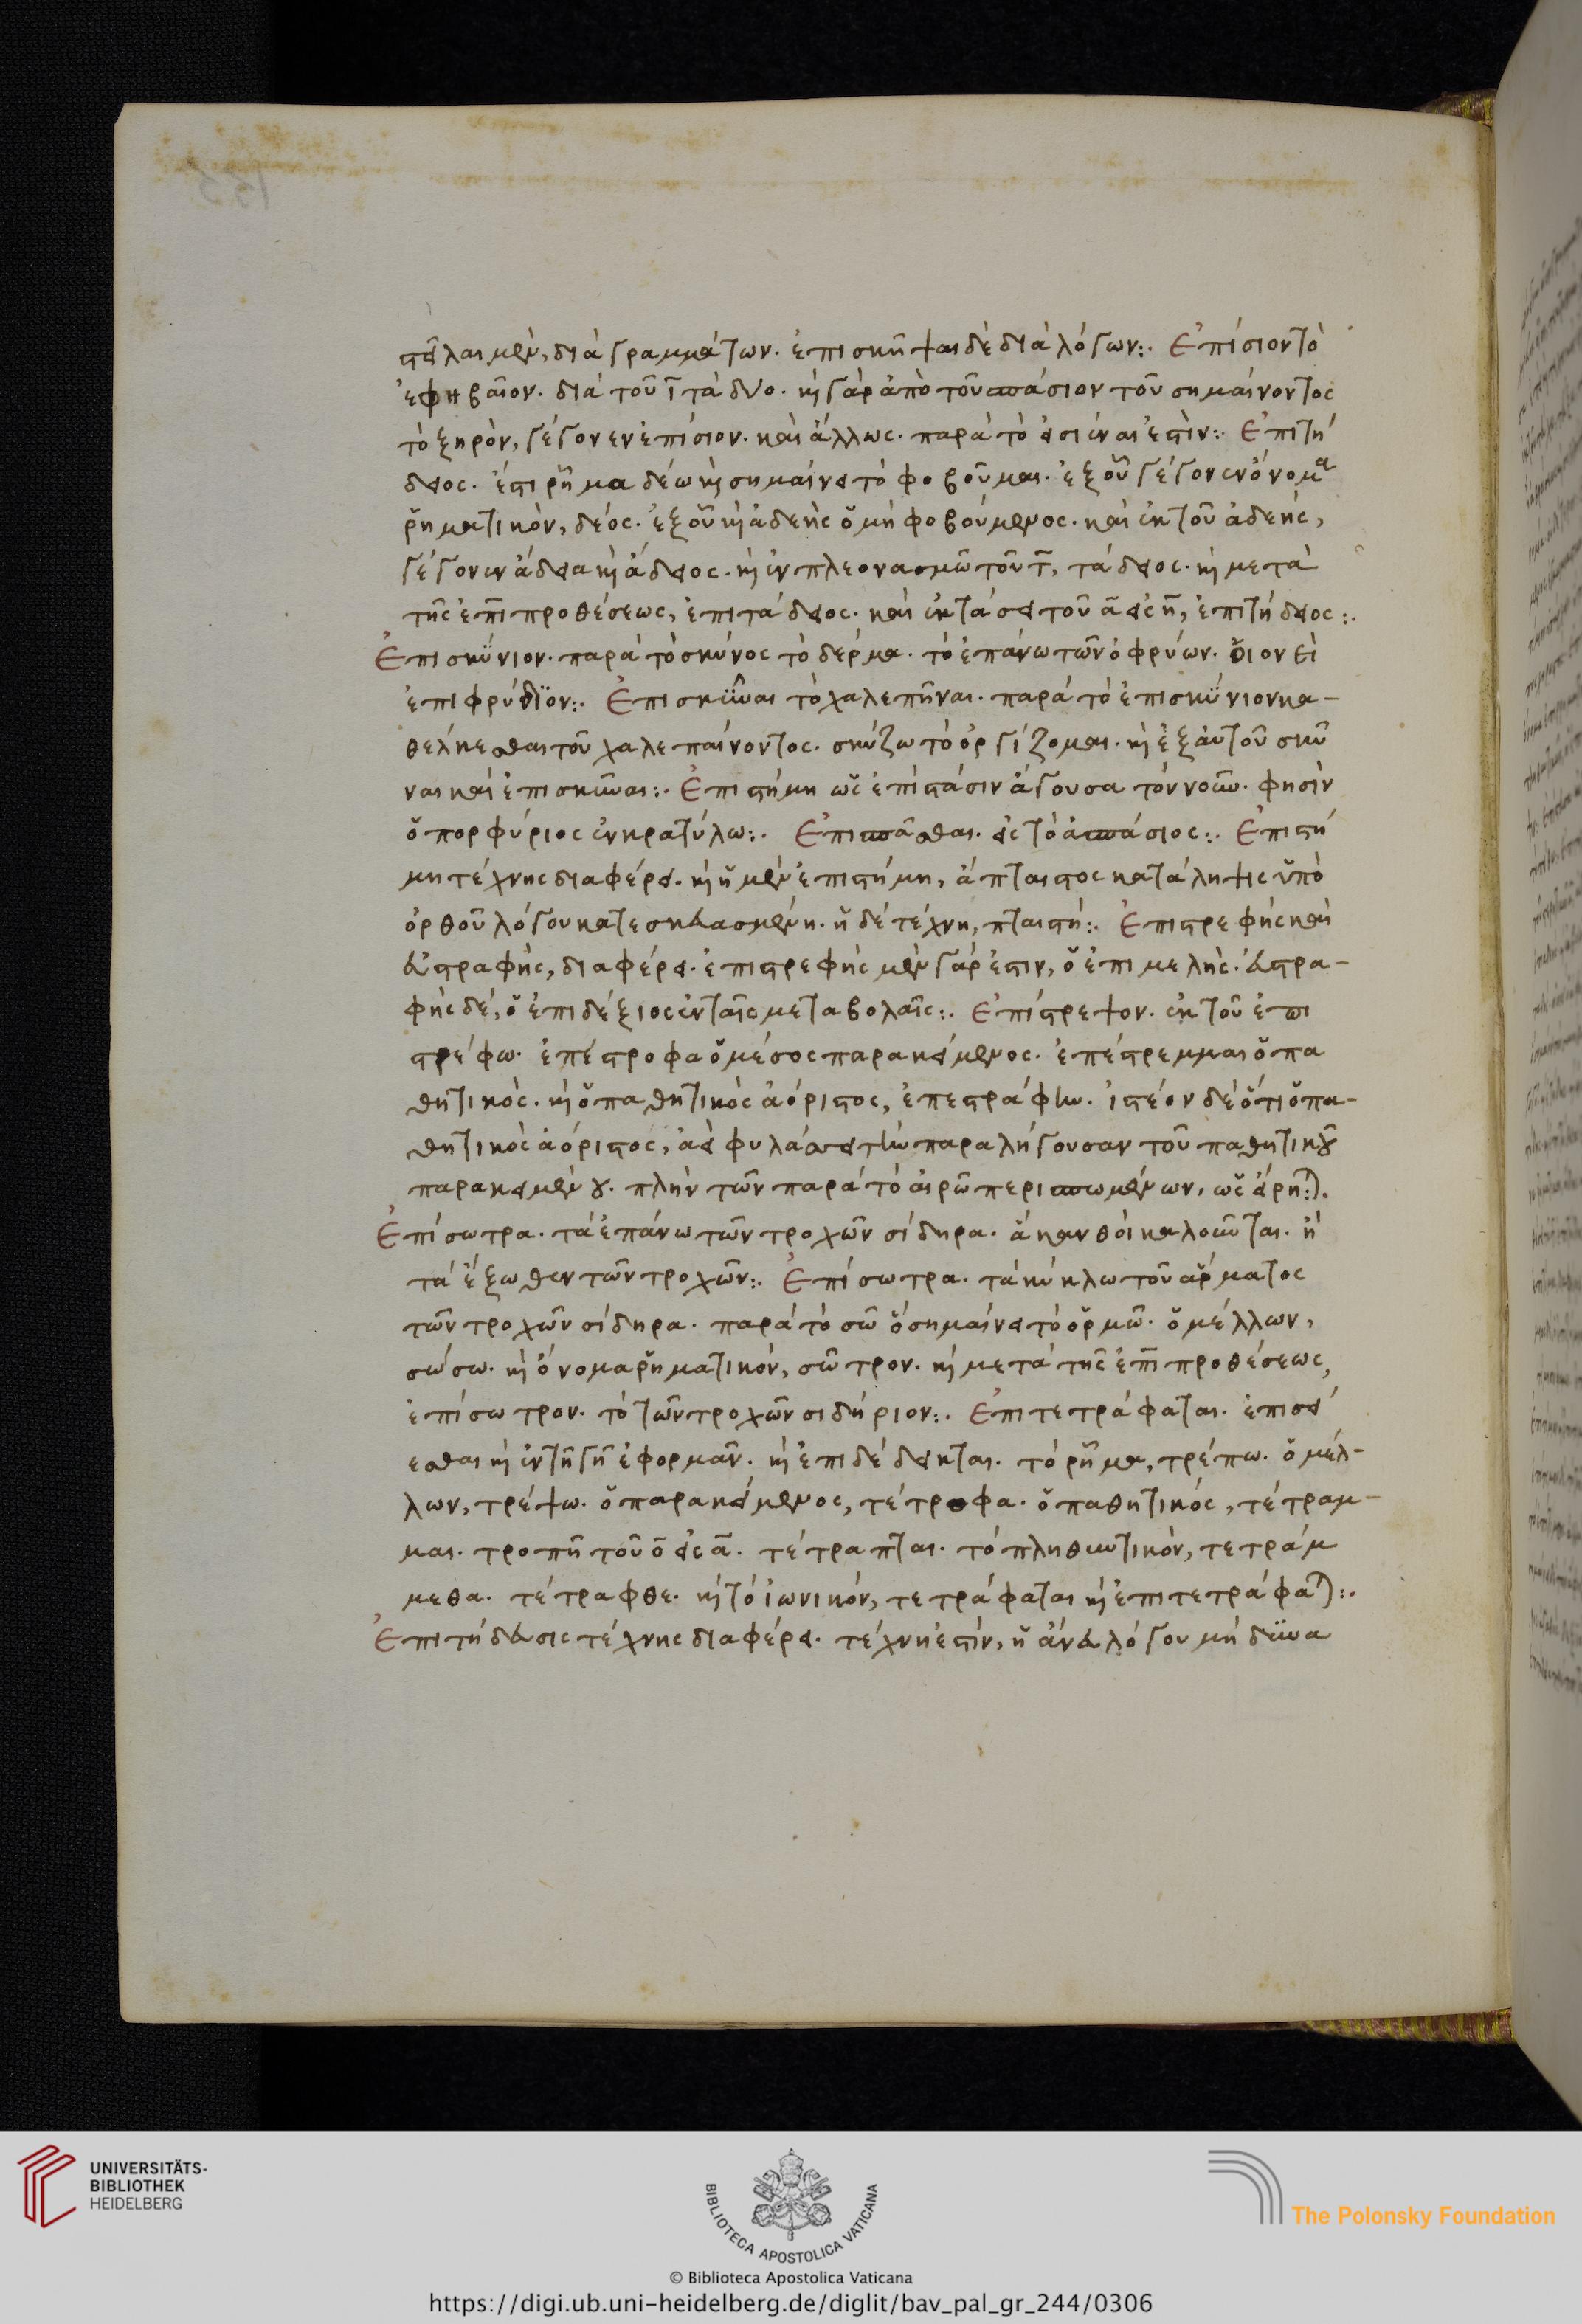 στεῖλαι μὲν, διὰ γραμμάτων. ἐπισκῆψαι δὲ διὰ λόγων:. Ἐπίσιον τὸ
ἐφηβαῖον. διὰ τοῦ ῑ τὰ δύο. καὶ γὰρ ἀπὸ τοῦ σπάσιον τοῦ σημαίνοντος
τὸ ξηρὸν, γέγονεν ἐπίσιον. καὶ ἄλλως. παρὰ τὸ εἰσιέναι ἐστὶν:. Ἐπιτή
δειος. ἔστι ῥῆμα δέω καὶ σημαίνει τὸ φοβοῦμαι. ἐξ οὗ γέγονεν ὄνομα
ῥηματικὸν, δέος. ἐξ οὗ καὶ ἀδεὴς ὁ μὴ φοβούμενος. καὶ ἐκ τοῦ ἀδεὴς,
γέγονεν ἄδεια καὶ ἄδειος. καὶ ἐν πλεονασμῶ τοῦ τ̄, τάδειος. καὶ μετὰ
τῆς ἐπῑ προθέσεως, ἐπιτάδειος. καὶ ἐκτάσει τοῦ ᾱ εἰς η̄, ἐπιτήδειος:.
Ἐπισκύνιον. παρὰ τὸ σκύνος τὸ δέρμα. τὸ ἐπάνω τῶν ὀφρύων. οἱονεὶ
ἐπιφρύδϊον:. Ἐπισκῦναι τὸ χαλεπῆναι. παρὰ τὸ ἐπισκύνιον κα-
θέλκεσθαι τοῦ χαλεπαίνοντος. σκύζω τὸ ὀργίζομαι. καὶ ἐξ αὐτοῦ σκῦ
ναι καὶ ἐπισκῦναι:. Ἐπιστήμη ὡς ἐπίστασιν ἄγουσα τὸν νοῦν. φησὶν
ὁ πορφύριος ἐν κρατύλω:. Ἐπισπᾶσθαι. εἰς τὸ ἀσπάσιος:. Ἐπιστή
μη τέχνης διαφέρει. καὶ ἡ μὲν ἐπιστήμη, ἄπταιστος κατάληψις ὑπὸ
ὀρθοῦ λόγου κατεσκευασμένη. ἡ δὲ τέχνη, πταιστή:. Ἐπιστρεφὴς καὶ
εὐστραφὴς, διαφέρει. ἐπιστρεφὴς μὲν γάρ ἐστιν, ὁ ἐπιμελής. εὐστρα-
φὴς δὲ, ὁ ἐπιδέξιος ἐν ταῖς μεταβολαῖς:. Ἐπίστρεψον. ἐκ τοῦ ἐπι
στρέφω. ἐπέστροφα ὁ μέσος παρακείμενος. ἐπέστρεμμαι ὁ πα
θητικὸς. καὶ ὁ παθητικὸς ἀόριστος, ἐπεστράφην. ἰστέον δὲ ὅτι ὁ πα-
θητικὸς ἀόριστος, ἀεὶ φυλάσσει τὴν παραλήγουσαν τοῦ παθητικοῦ
παρακειμένου. πλὴν τῶν παρὰ τὸ αἱρῶ περισπωμένων, ὡς εἴρηται.
Ἐπίσωτρα. τὰ ἐπάνω τῶν τροχῶν σίδηρα. ἃ κανθοὶ καλοῦνται. ἢ
τὰ ἔξωθεν τῶν τροχῶν:. Ἐπίσωτρα. τὰ κύκλω τοῦ ἅρματος
τῶν τροχῶν σίδηρα. παρὰ τὸ σῶ ὃ σημαίνει τὸ ὁρμῶ. ὁ μέλλων,
σώσω. καὶ ὄνομα ῥηματικὸν, σῶτρον. καὶ μετὰ τῆς ἐπῑ προθέσεως,
ἐπίσωτρον. τὸ τῶν τροχῶν σιδήριον:. Ἐπιτετράφαται. ἐπισεί
εσθαι καὶ ἐν τῇ γῇ ἐφορμᾶν. καὶ ἐπιδέδεικται. τὸ ῥῆμα, τρέπω. ὁ μέλ-
λων, τρέψω. ὁ παρακείμενος, τέτροφα. ὁ παθητικός, τέτραμ-
μαι. τροπῆ τοῦ ο̄ εἰς ᾱ. τέτραπται. τὸ πληθυντικὸν, τετράμ
μεθα. τέτραφθε. καὶ τὸ ἰωνικόν, τετράφαται καὶ ἐπιτετράφαται:.
Ἐπιτήδευσις τέχνης διαφέρει. τέχνη ἐστὶν, ἡ ἄνευ λόγου μὴ δυνα
UNIVERSITÄTS-
BIBLIOTHEK
HEIDELBERG
BIBLIOTECA APOSTOLICA VATICANA
The Polonsky Foundation
© Biblioteca Apostolica Vaticana
https://digi.ub.uni-heidelberg.de/diglit/bav_pal_gr_244/0306